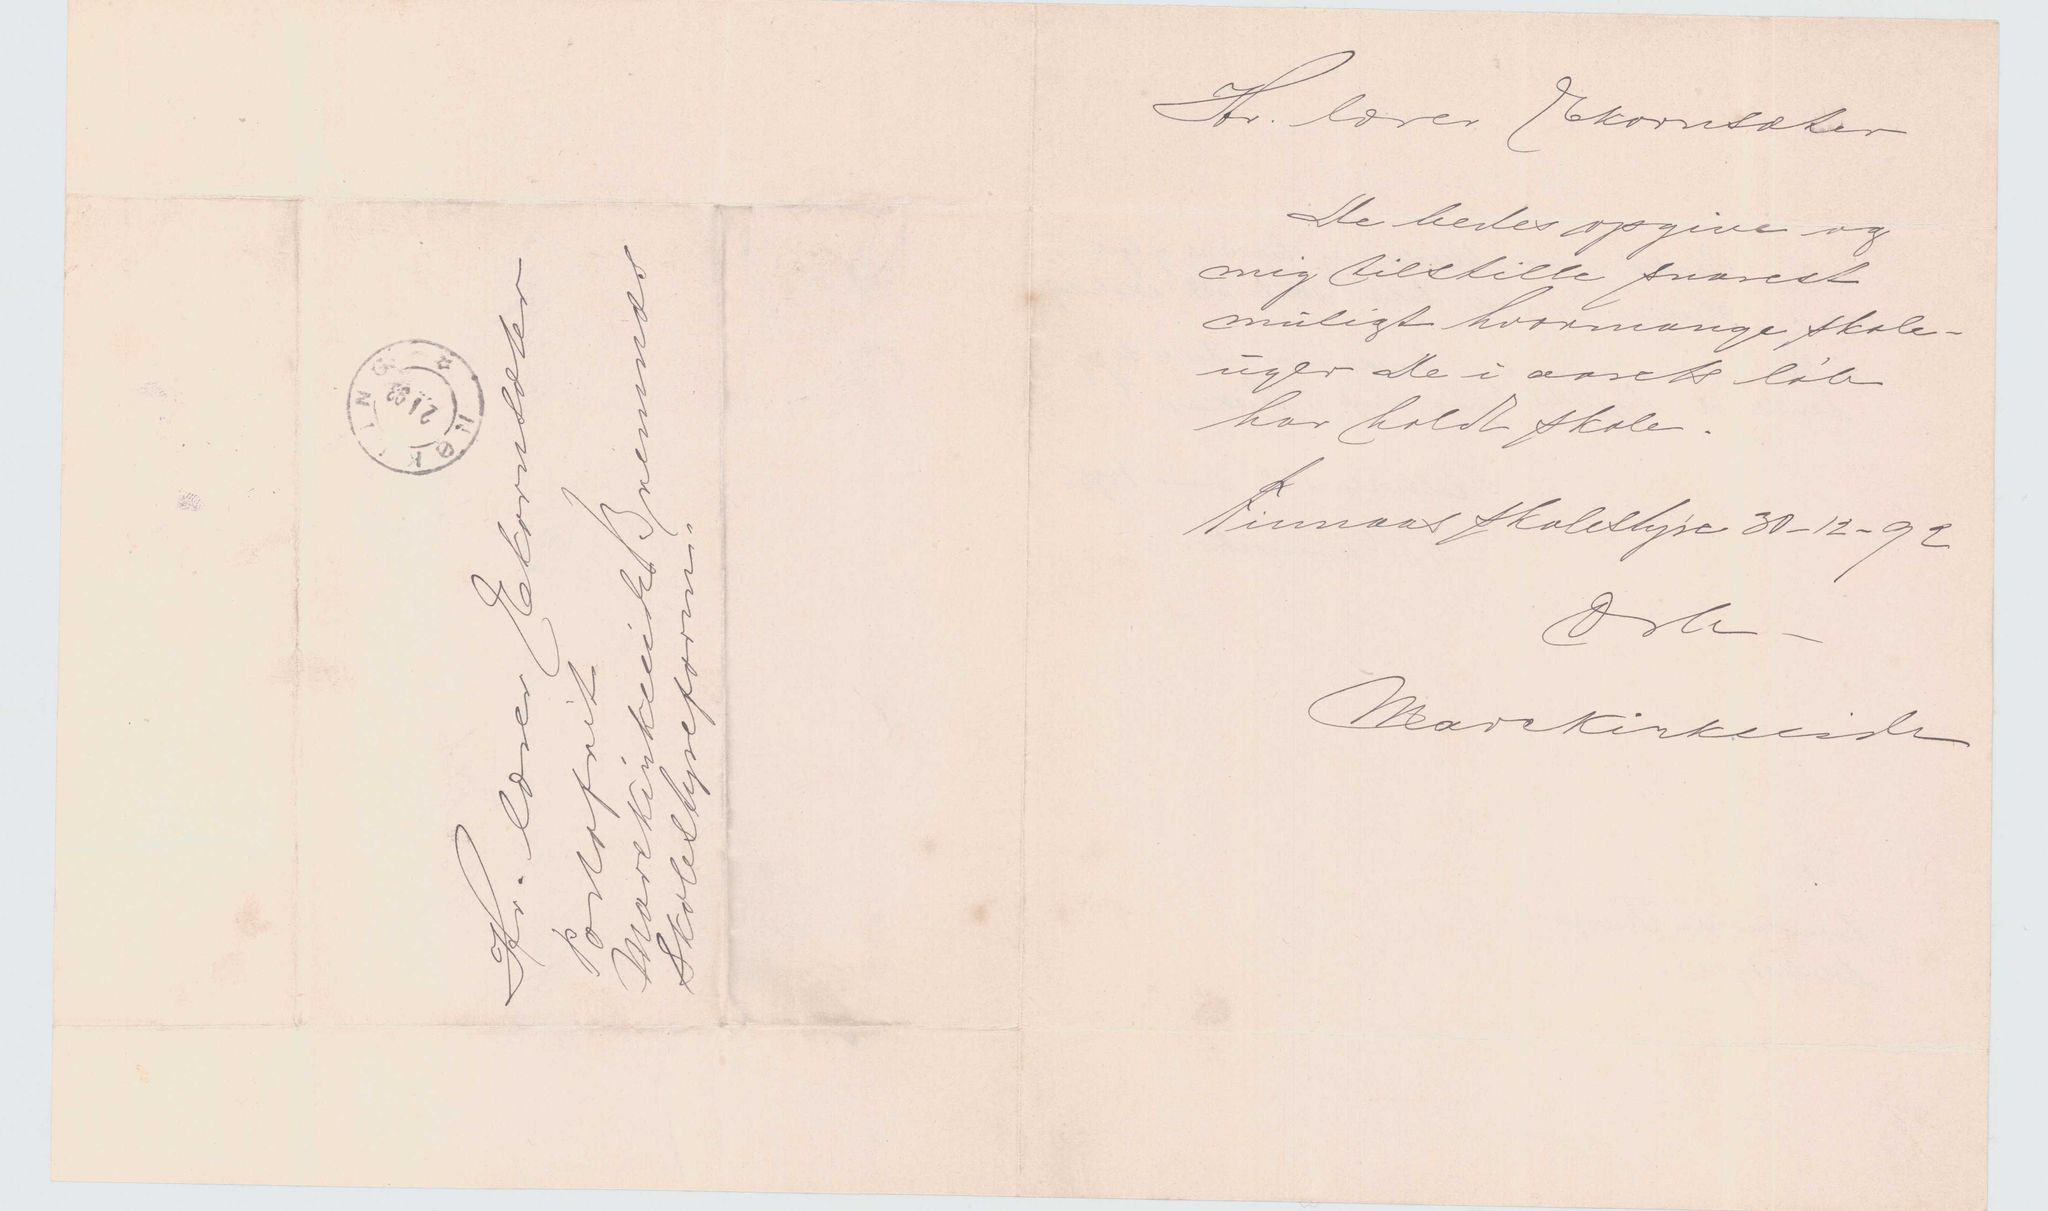 Hr. lærer Ekornsæter
De bedes opgive og
mig tilstille snarest
muligt hvormange skole-
uger De i aarets løb
har holdt skole.
Finnaas skolestyre 30-12-92
Ærb-
Mar Kirkeeide
Hr. lærer Ekornsæter
Bremnæs
Portofrit
Skolestyreform.
21 93